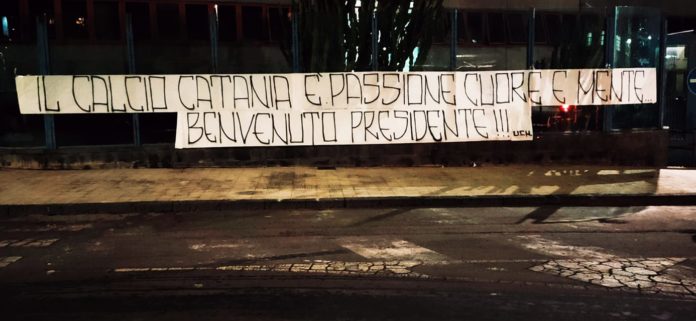 IL CALCIO CATANIA E' PASSIONE CUORE E MENTE...
BENVENUTO PRESIDENTE!!!